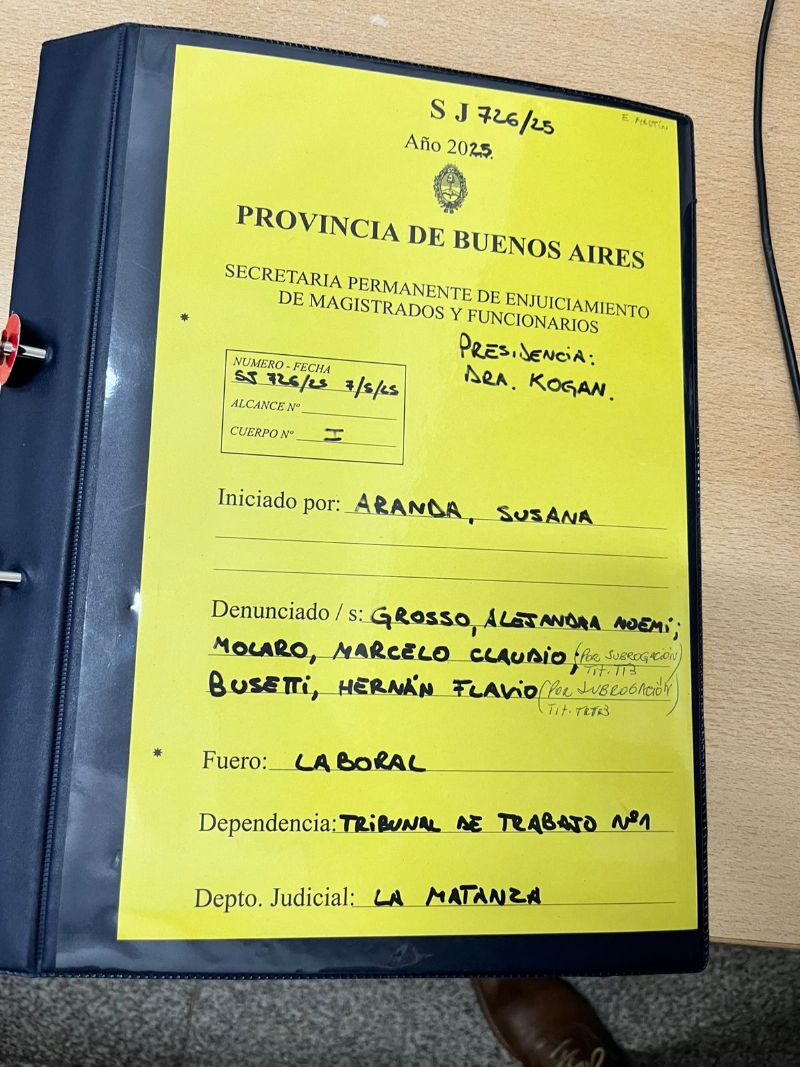 S J 726/25
E. MARTÍN
Año 2025.
PROVINCIA DE BUENOS AIRES
SECRETARIA PERMANENTE DE ENJUICIAMIENTO
DE MAGISTRADOS Y FUNCIONARIOS
PRESIDENCIA:
DRA. KOGAN.
NUMERO - FECHA
SJ 726/25 7/5/25
ALCANCE Nº
CUERPO Nº I
Iniciado por: ARANDA, SUSANA
Denunciado / s: GROSSO, ALEJANDRA NOEMÍ;
MOLARO, MARCELO CLAUDIO; (POR SUBROGACIÓN)
TIT. TT3
BUSETTI, HERNÁN FLAVIO (POR SUBROGACIÓN
TIT.
Fuero: LABORAL
Dependencia: TRIBUNAL DE TRABAJO Nº1
Depto. Judicial: LA MATANZA